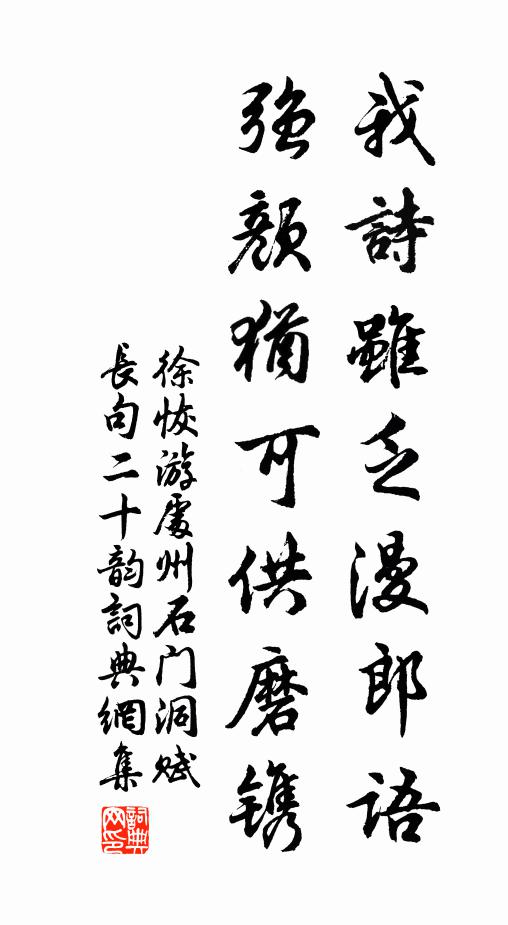 我詩雖乏漫郎語
強顏猶可供磨鐫
徐恢游處州石门洞赋
長句二十韵詞典網集
詞典
网印